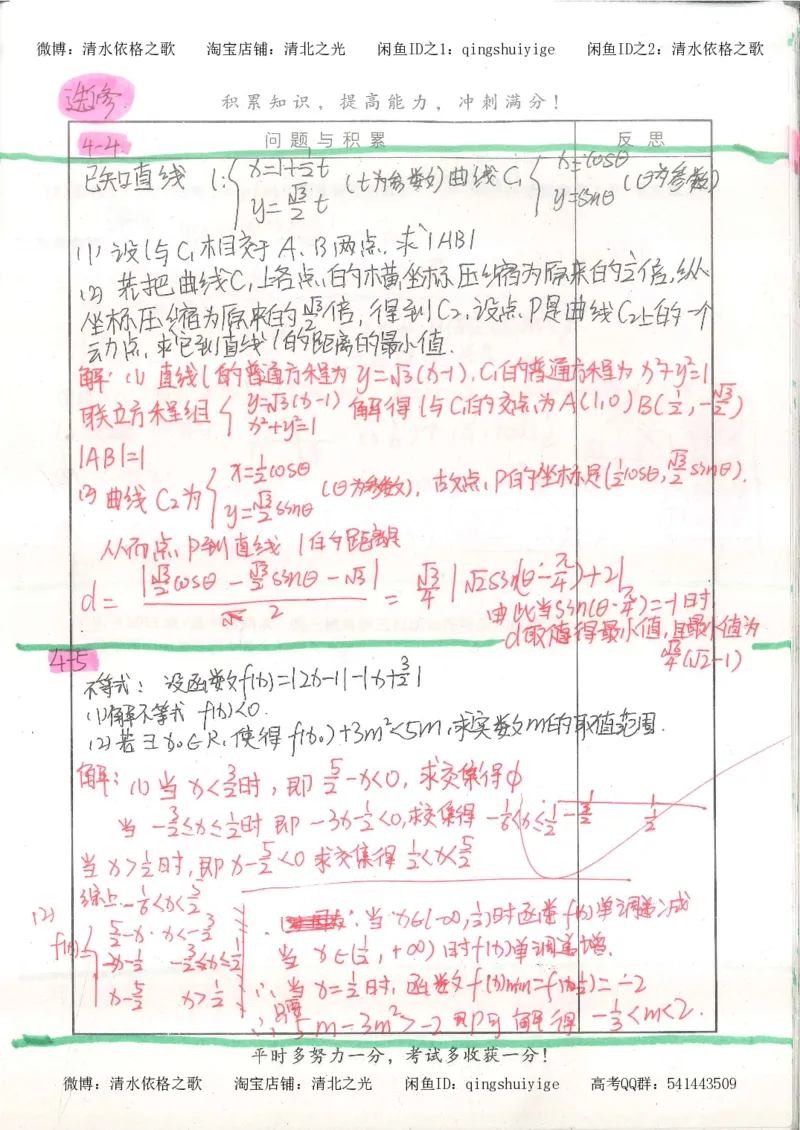 微博：清水依格之歌 淘宝店铺：清北之光 闲鱼ID之1：qingshuiyige 闲鱼ID之2：清水依格之歌
选修
积累知识，提高能力，冲刺满分！
4-4
问题与积累 反思
已知直线 l:{x=1+½t y=√3/2 t (t为参数)曲线C₁{x=cosθ y=sinθ (θ为参数)
(1) 设l与C₁相交于A、B两点，求|AB|
(2) 若把曲线C₁上各点的横坐标压缩为原来的½倍，纵
坐标压缩为原来的√3/2倍，得到C₂，设点P是曲线C₂上的一个
动点，求它到直线l的距离的最小值.
解：(1) 直线l的普通方程为y=√3(x-1)，C₁的普通方程为x²+y²=1
联立方程组{y=√3(x-1) x²+y²=1 解得l与C₁的交点为A(1,0) B(½,-√3/2)
|AB|=1
(2) 曲线C₂为{x=½cosθ y=√3/2 sinθ (θ为参数)，故点P的坐标是(½cosθ, √3/2 sinθ).
从而点P到直线l的距离是
d=|√3/2 cosθ-√3/2 sinθ-√3|/2=√3/4|√2sin(θ-π/4)+2|
由此当sin(θ-π/4)=-1时
d取得最小值，且最小值为
√6/4(√2-1)
4-5
不等式：设函数f(x)=|2x-1|-|x+3/2|
(1)解不等式f(x)<0.
(2)若∃x₀∈R，使得f(x₀)+3m²<5m，求实数m的取值范围.
解：(1) 当x<3/2时，即5/2-x<0，求交集得∅
当-3/2≤x≤½时 即-3x-½<0，求交集得-1/6<x≤½
当x>½时，即x-5/2<0 求交集得½<x<5/2
综上-1/6<x<5/2
(2)
f(x)={5/2-x x<-3/2
-3x-½ -3/2≤x≤½
x-5/2 x>½
当x∈(-∞,½)时函数f(x)单调递减
当x∈(½,+∞)时f(x)单调递增.
∴当x=½时，函数f(x)min=f(½)=-2
∴只要5m-3m²>-2即可 解得-1/3<m<2.
平时多努力一分，考试多收获一分！
微博：清水依格之歌 淘宝店铺：清北之光 闲鱼ID：qingshuiyige 高考QQ群：541443509